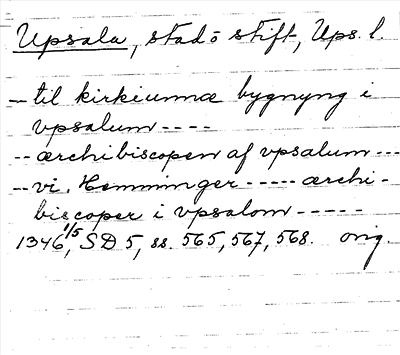 Upsala, stad o stift, Ups. l.
– til kirkiunnæ bygnyng i
vpsalum ----
-- ærchibiscopen af vpsalum ---
-- vi. Hemminger ----- ærchi-
biscoper i vpsalom -----
1346 1/5, SD 5, ss. 565, 567, 568. orig.